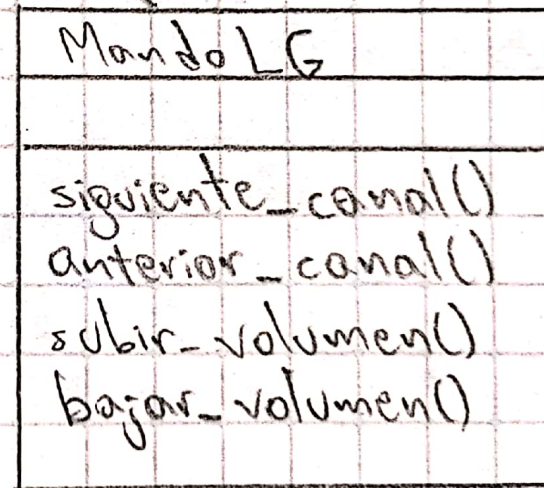 Mando LG
siguiente_canal()
anterior_canal()
subir_volumen()
bajar_volumen()